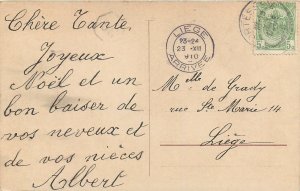 Chère Tante,
Joyeux
Noël et un
bon baiser de
vos neveux et
de vos nièces
Albert
LIEGE
23-24
23 XII
ARRIVEE
Melle de Grady
rue Ste Marie 14
Liège
5